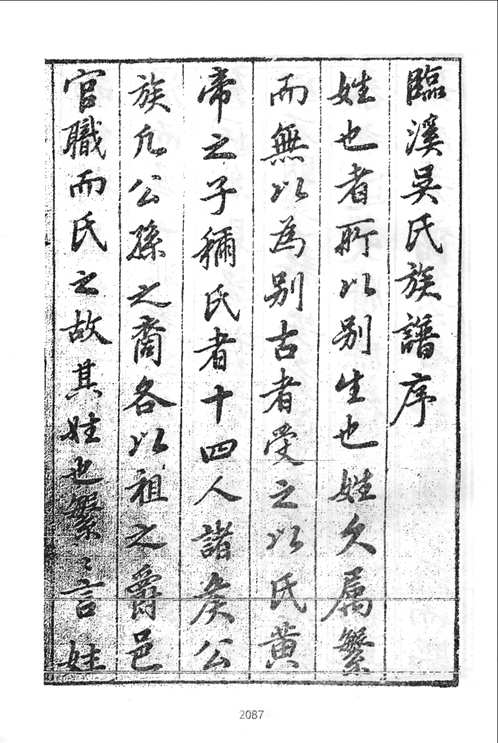 臨溪吴氏族譜序
姓也者所以别生也姓久属繁
而無以為别古者受之以氏黄
帝之子稱氏者十四人諸矦公
族凢公孫之裔各以祖之爵邑
官職而氏之故其姓也繁〻言姓
2087